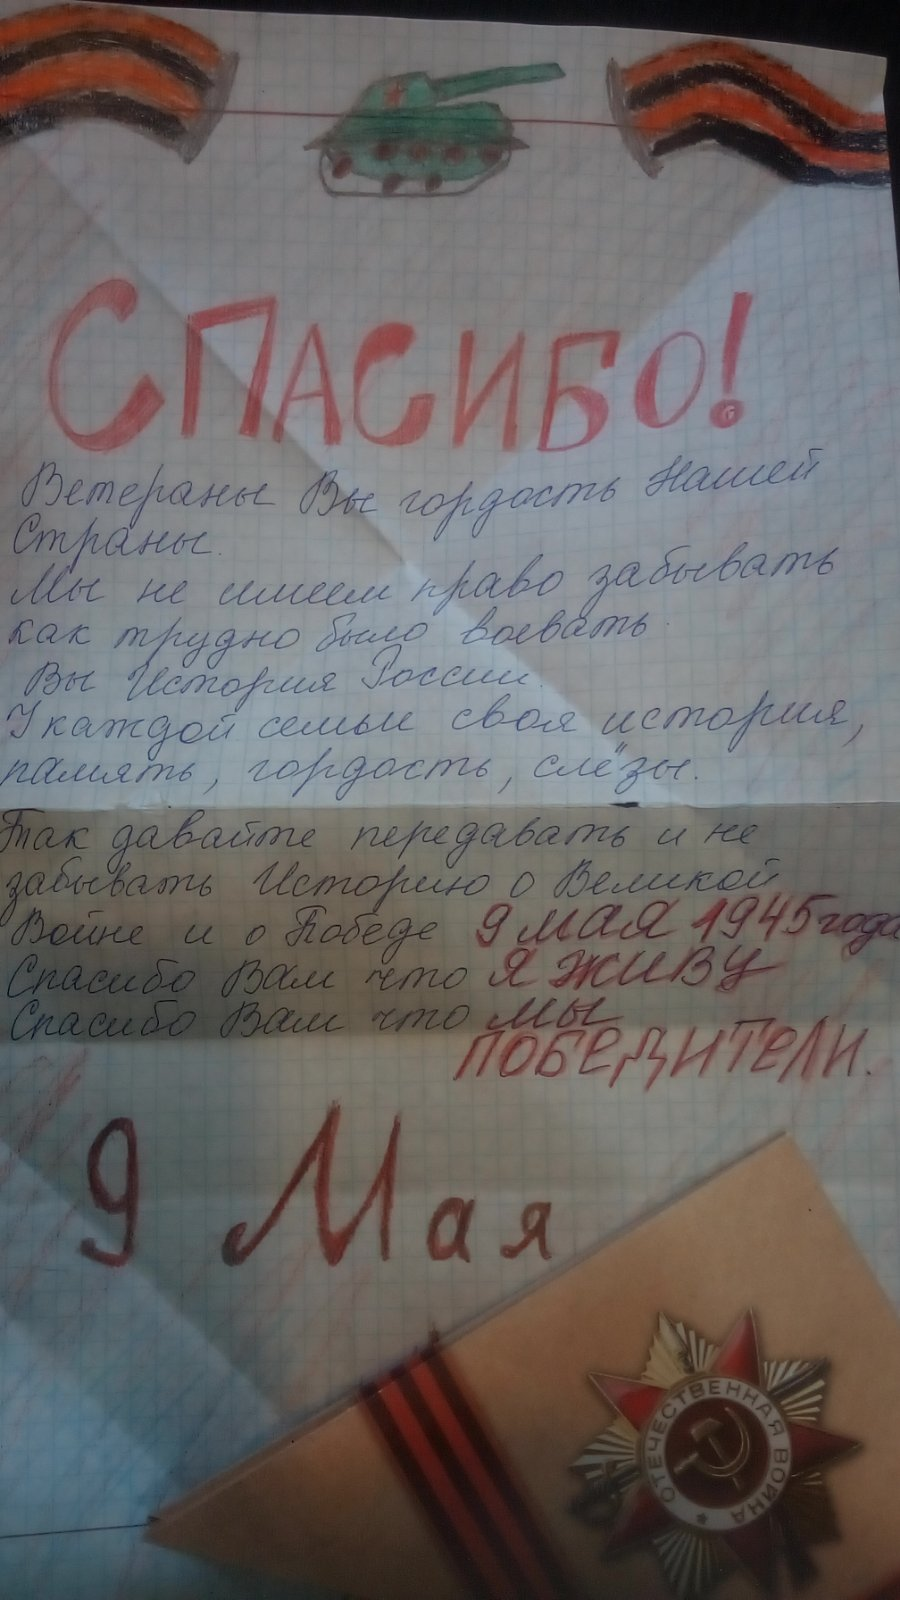 СПАСИБО!
Ветераны Вы гордость Нашей
Страны.
Мы не имеем право забывать
как трудно было воевать.
Вы История России.
У каждой семьи своя история,
память, гордость, слёзы.
Так давайте передавать и не
забывать Историю о Великой
Войне и о Победе 9 мая 1945 года
Спасибо Вам что я живу
Спасибо Вам что мы
ПОБЕДИТЕЛИ.
9 Мая
ОТЕЧЕСТВЕННАЯ ВОЙНА